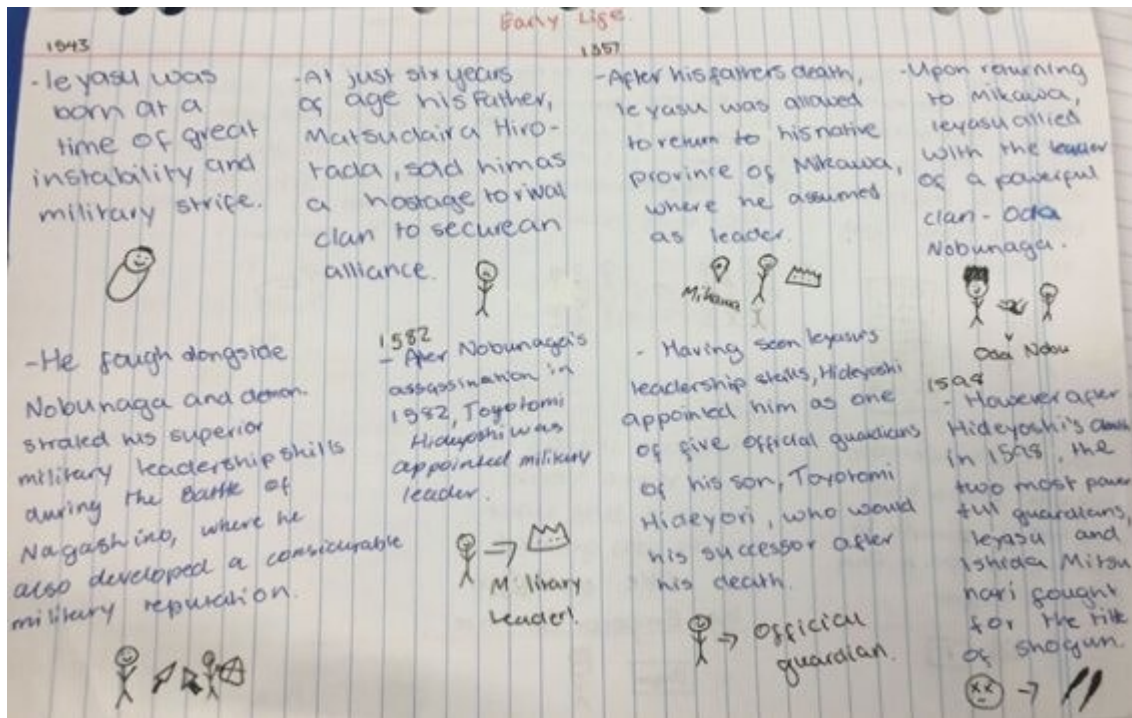 Early Life
1543
-Ieyasu was
born at a
time of great
instability and
military strife.
-At just six years
of age his father,
Matsudaira Hiro-
tada, sold him as
a hostage to rival
clan to secure an
alliance.
1557
-After his fathers death,
Ieyasu was allowed
to return to his native
province of Mikawa,
where he assumed
as leader.
Mikawa
-Upon returning
to Mikawa,
Ieyasu allied
with the leader
of a powerful
clan - Oda
Nobunaga.
Oda Nobu
-He fough alongside
Nobunaga and demon-
strated his superior
military leadership skills
during the Battle of
Nagashino, where he
also developed a considurable
military reputation.
1582
- After Nobunaga's
assassination in
1982, Toyotomi
Hideyoshi was
appointed military
leader.
Military
Leader!
- Having seen Ieyasu's
leadership skills, Hideyoshi
appointed him as one
of five official guardians
of his son, Toyotomi
Hideyori, who would
his successor after
his death.
Official
guardian.
1598
- However after
Hideyoshi's death
in 1598, the
two most power
ful guardians,
Ieyasu and
Ishida Mitsu
nari fought
for the title
of shogun.